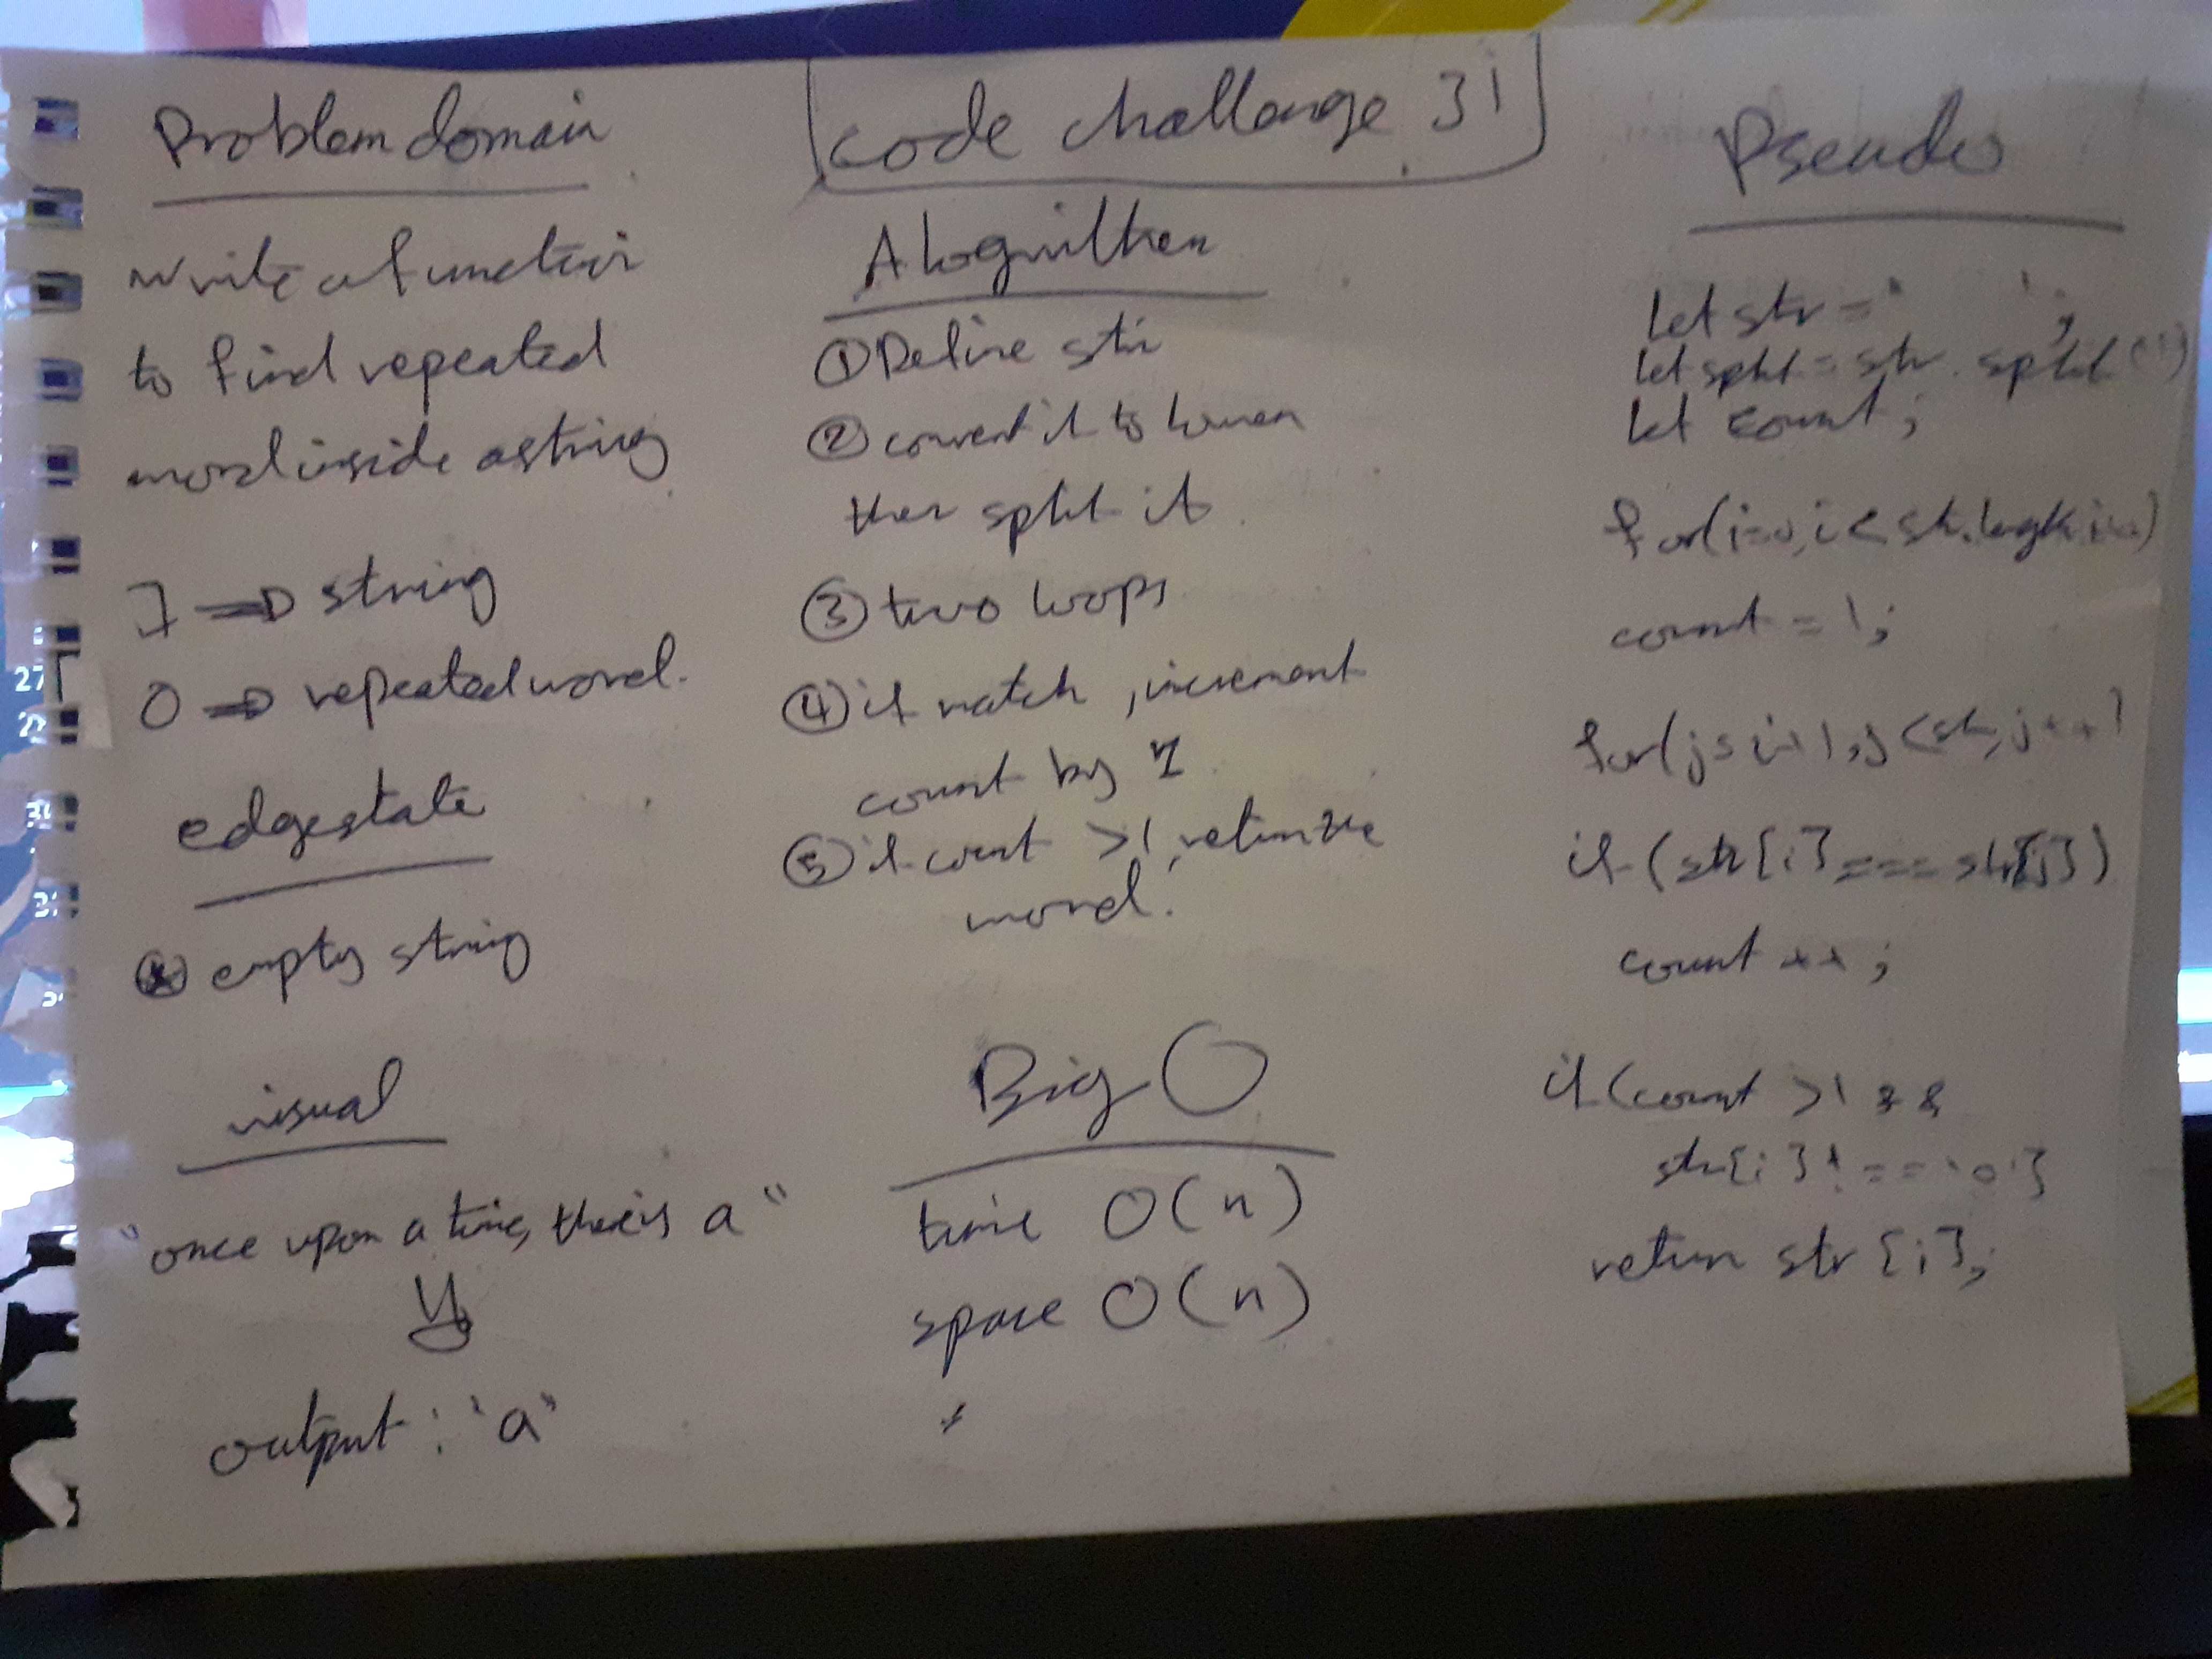 code challange 31
Problem domain
write a function
to find repeated
word inside a string
I => string
O => repeated word.
edge state
empty string
visual
"once upon a time, there is a"
output : "a"
Alogrithem
① Define str
② convert it to lower
then split it
③ two loops
④ if match, increment
count by 1
⑤ if count >1, return the
word.
Big O
time O(n)
space O(n)
Pseudo
let str = ' ';
let split = str. split(' ')
let count;
for(i=0, i< str.length i++)
count = 1;
for(j=i+1, j<str, j++)
if (str[i] === str[j])
count ++;
if (count >1 &&
str[i] !==
return str [i];